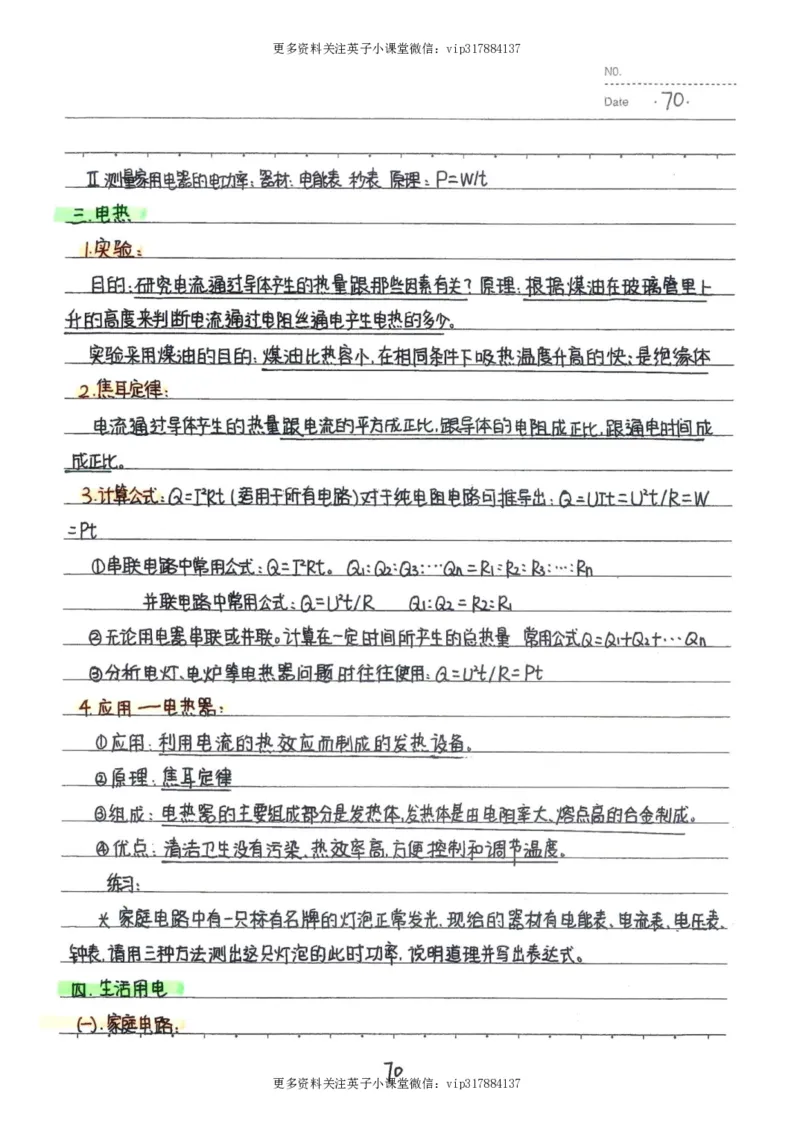 更多资料关注英子小课堂微信：vip317884137
NO.
Date ·70·
Ⅱ测量家用电器的电功率：器材：电能表 秒表 原理：P=W/t
三.电热
1.实验：
目的：研究电流通过导体产生的热量跟那些因素有关？原理：根据煤油在玻璃管里上
升的高度来判断电流通过电阻丝通电产生电热的多少。
实验采用煤油的目的：煤油比热容小，在相同条件下吸热温度升高的快；是绝缘体
2.焦耳定律：
电流通过导体产生的热量跟电流的平方成正比，跟导体的电阻成正比，跟通电时间成
成正比。
3.计算公式：Q=I²Rt（适用于所有电路）对于纯电阻电路可推导出：Q=UIt=U²t/R=W
=Pt
①串联电路中常用公式：Q=I²Rt。Q₁:Q₂:Q₃:…Qn=R₁:R₂:R₃:…:Rn
并联电路中常用公式：Q=U²t/R Q₁:Q₂=R₂:R₁
②无论用电器串联或并联。计算在一定时间所产生的总热量 常用公式Q=Q₁+Q₂+…Qn
③分析电灯、电炉等电热器问题时往往使用：Q=U²t/R=Pt
4.应用—电热器：
①应用：利用电流的热效应而制成的发热设备。
②原理：焦耳定律
③组成：电热器的主要组成部分是发热体，发热体是由电阻率大、熔点高的合金制成。
④优点：清洁卫生没有污染、热效率高、方便控制和调节温度。
练习：
☆ 家庭电路中有一只标有名牌的灯泡正常发光，现给的器材有电能表、电流表、电压表、
钟表，请用三种方法测出这只灯泡的此时功率，说明道理并写出表达式。
四.生活用电
(一).家庭电路：
70
更多资料关注英子小课堂微信：vip317884137